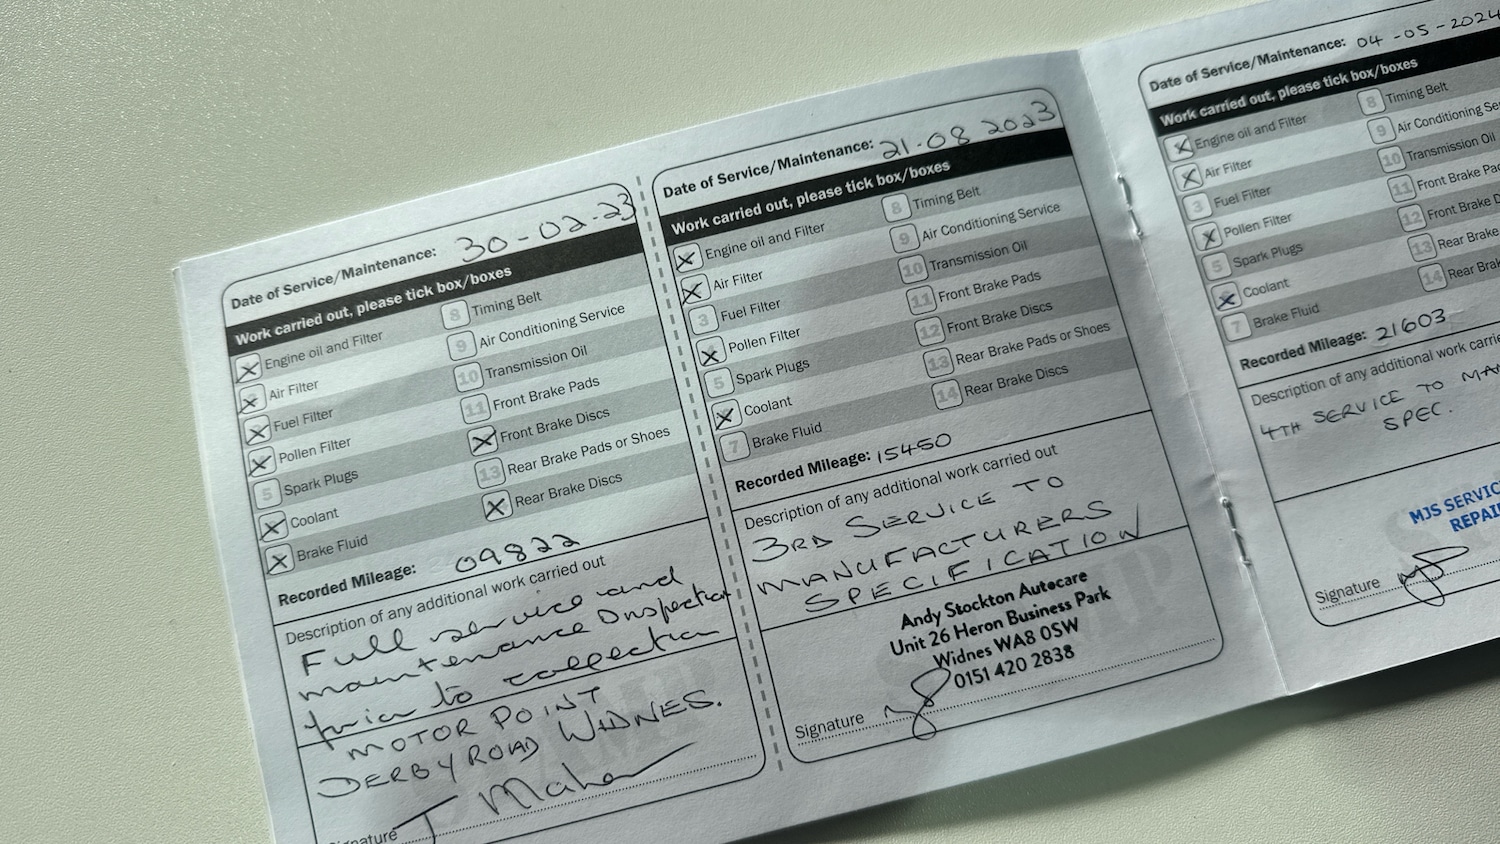 Date of Service/Maintenance: 30-02-23
Work carried out, please tick box/boxes
Engine oil and Filter
Air Filter
Fuel Filter
Pollen Filter
5 Spark Plugs
Coolant
Brake Fluid
8 Timing Belt
9 Air Conditioning Service
10 Transmission Oil
11 Front Brake Pads
Front Brake Discs
13 Rear Brake Pads or Shoes
Rear Brake Discs
Recorded Mileage: 09822
Description of any additional work carried out
Full service and
maintenance Inspection
prior to collection
MOTOR POINT
DERBY ROAD WIDNES.
Signature T Maher
Date of Service/Maintenance: 21-08 2023
Work carried out, please tick box/boxes
Engine oil and Filter
Air Filter
3 Fuel Filter
Pollen Filter
5 Spark Plugs
Coolant
7 Brake Fluid
8 Timing Belt
9 Air Conditioning Service
10 Transmission Oil
11 Front Brake Pads
12 Front Brake Discs
13 Rear Brake Pads or Shoes
14 Rear Brake Discs
Recorded Mileage: 15450
Description of any additional work carried out
3RD SERVICE TO
MANUFACTURERS
SPECIFICATION
Andy Stockton Autocare
Unit 26 Heron Business Park
Widnes WA8 0SW
0151 420 2838
Signature
Date of Service/Maintenance: 04-05-2024
Work carried out, please tick box/boxes
Engine oil and Filter
Air Filter
3 Fuel Filter
Pollen Filter
5 Spark Plugs
Coolant
7 Brake Fluid
8 Timing Belt
9 Air Conditioning Se
10 Transmission Oil
11 Front Brake Pa
12 Front Brake D
13 Rear Brake
14 Rear Brak
Recorded Mileage: 21603
Description of any additional work carrie
4TH SERVICE TO MA
SPEC.
MJS SERVIC
REPAI
Signature